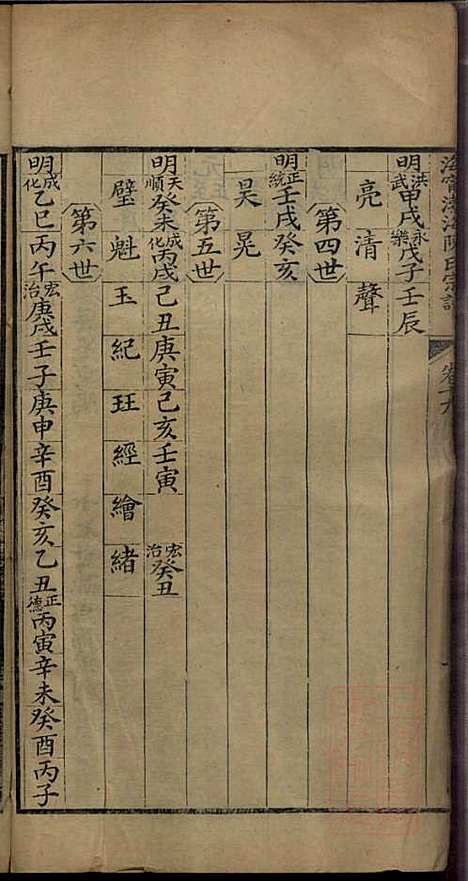 海寧渤海陳氏宗譜
明洪武甲戌永樂戊子壬辰
亮清聲
第四世
明正統壬戌癸亥
昊晃
第五世
明天順癸未成化丙戌己丑庚寅己亥壬寅宏治癸丑
璧魁玉紀珏經繪緒
第六世
明成化乙巳丙午宏治庚戌壬子庚申辛酉癸亥乙丑正德丙寅辛未癸酉丙子